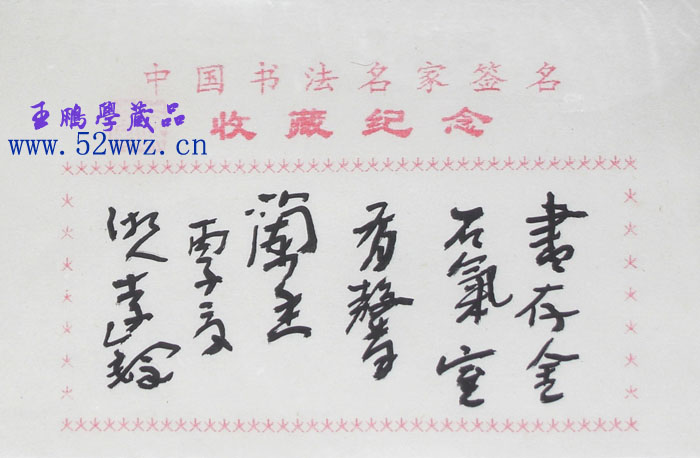 中国书法名家签名
收藏纪念
王鹏學藏品
www.52wwz.cn
書存金
石氣室
有馨
蘭香
丙子夏